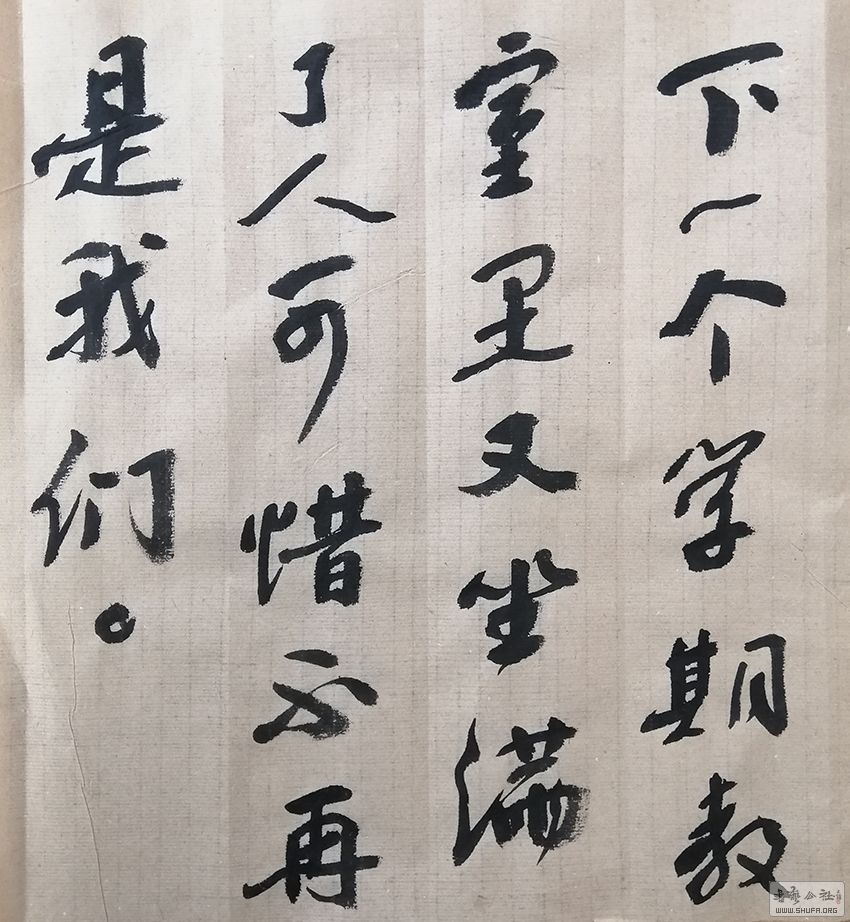 下一个学期教
室里又坐满
了人可惜不再
是我们。
书法公社
WWW.SHUFA.ORG